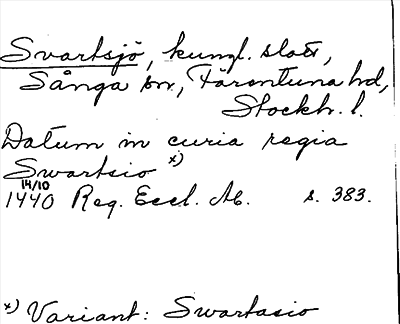 Svartsjö, kungl. slott,
Sånga sn, Färentuna hd,
Stockh. l.
Datum in curia regia
Swartsio x)
14/10
1440 Reg. Eccl. Ab. s. 383.
x) Variant: Swartasio